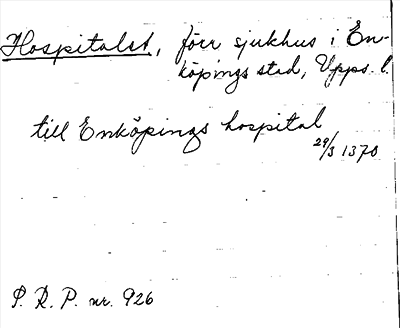 Hospitalet, förr sjukhus i En-
köpings stad, Upps. l.
till Enköpings hospital
29/3 1370
P. R. P. nr. 926